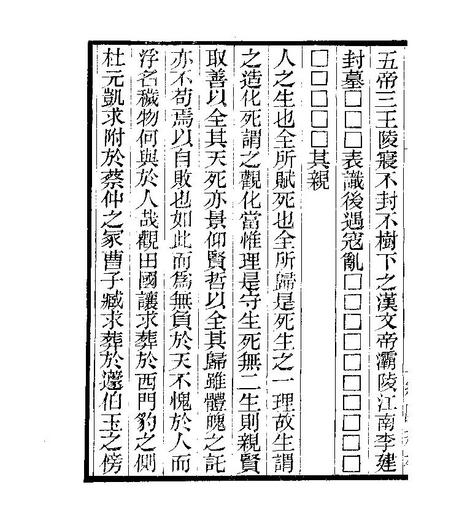 五帝三王陵寢不封不樹下之漢文帝灞陵江南李建
封墓□□□表識後遇寇亂□□□□□□□□□□
□□□□□其親
人之生也全所賦死也全所歸是死生之一理故生謂
之造化死謂之觀化當惟理是守生死無二生則親賢
取善以全其天死亦景仰賢哲以全其歸雖體魄之託
亦不苟焉以自敗也如此而為無負於天不愧於人而
浮名穢物何與於人哉觀田國讓求葬於西門豹之側
杜元凱求附於蔡仲之冢曹子臧求葬於蘧伯玉之傍